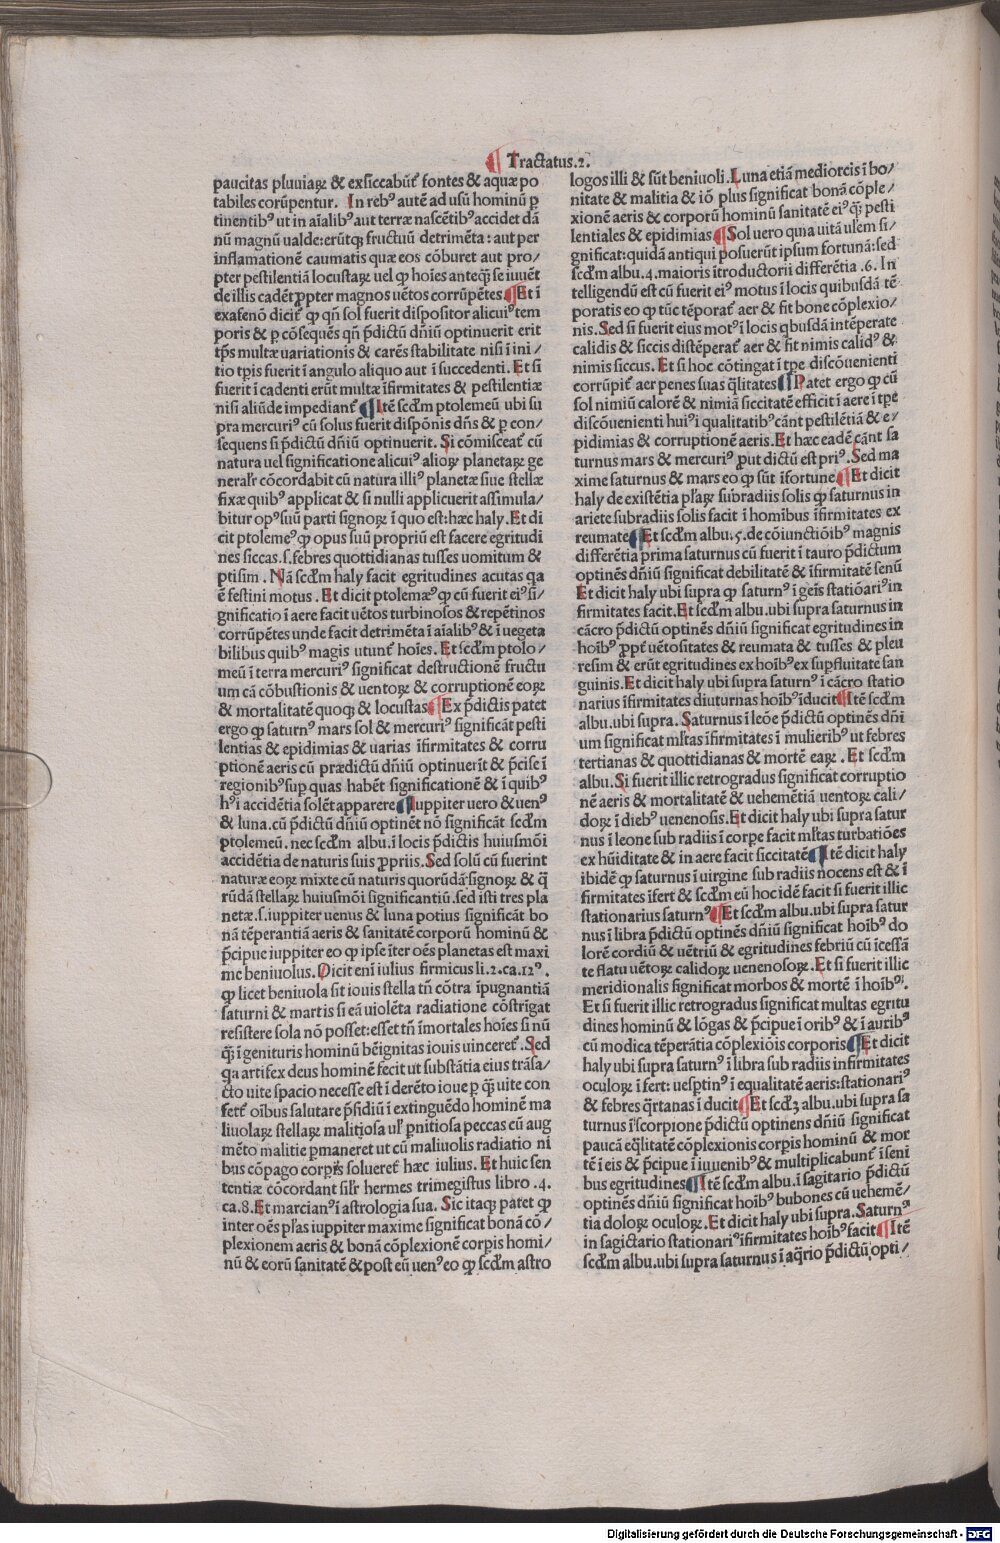 ¶ Tractatus.2.
paucitas pluuiaꝝ & exsiccabūt̃ fontes & aquæ po
tabiles corūpentur. In reb⁹ autē ad usū hominū ꝑ
tinentib⁹ ut in aīalib⁹ aut terræ nascētib⁹ accidet dā
nū magnū ualde: erūtqꝫ fructuū detrimēta: aut per
inflamationē caumatis quæ eos cōburet aut pro/
pter pestilentiā locustaꝝ uel ꝙ hoīes anteqꝫ̄ se iuuēt
de illis cadēt ꝓpter magnos uētos corrūpētes ¶ Et ī
exafenō dicit̃ ꝙ qn̄ sol fuerit dispositor alicui⁹ tem
poris & ꝑ cōsequēs qn̄ p̄dictū dn̄iū optinuerit erit
tp̄s multæ uariationis & carēs stabilitate nisi ī ini/
tio tp̄is fuerit ī angulo aliquo aut ī succedenti. Et si
fuerit ī cadenti erūt multæ īfirmitates & pestilentiæ
nisi aliūde impediant̃ ¶ Itē scd̄m ptolemeū ubi su
pra mercuri⁹ cū solus fuerit dispōnis dn̄s & ꝑ con/
sequens si p̄dictū dn̄iū optinuerit. Si cōmisceat̃ cū
natura uel significatione alicui⁹ alioꝝ planetaꝝ ge
neral'r cōcordabit cū natura illi⁹ planetæ siue stellæ
fixæ quib⁹ applicat & si nulli applicuerit assimula/
bitur op⁹ suū parti signoꝝ ī quo est: hæc haly. Et di
cit ptoleme⁹ ꝙ opus suū propriū est facere egritudi
nes siccas.s. febres quottidianas tusses uomitum &
ptisim. Nā scd̄m haly facit egritudines acutas qa
ē festini motus. Et dicit ptolemæ⁹ ꝙ cū fuerit ei⁹ si/
gnificatio ī aere facit uētos turbinosos & repētinos
corrūpētes unde facit detrimēta ī aīalib⁹ & ī uegeta
bilibus quib⁹ magis utunt̃ hoīes. Et scd̄m ptolo/
meū ī terra mercuri⁹ significat destructionē fructu
um cā cōbustionis & uentoꝝ & corruptionē eoꝝ
& mortalitatē quoqꝫ & locustas ¶ Ex p̄dictis patet
ergo ꝙ saturn⁹ mars sol & mercuri⁹ significāt pesti
lentias & epidimias & uarias īfirmitates & corru
ptionē aeris cū prædictū dn̄iū optinuerīt & p̄cise ī
regionib⁹ sup quas habēt significationē & ī quib⁹
h⁹i accidētia solēt apparere ¶ Iuppiter uero & uen⁹
& luna. cū p̄dictū dn̄iū optinēt nō significāt scd̄m
ptolemeū. nec scd̄m albu. ī locis p̄dictis huiusmōi
accidētia de naturis suis ꝓpriis. Sed solū cū fuerint
naturæ eoꝝ mixte cū naturis quorūdā signoꝝ & q̄
rūdā stellaꝝ huiusmōi significantiū. sed isti tres pla
netæ.s. iuppiter uenus & luna potius significāt bo
nā tēperantiā aeris & sanitatē corporū hominū &
p̄cipue iuppiter eo ꝙ ipse īter oēs planetas est maxi
me beniuolus. Dicit enī iulius firmicus li.2.ca.12⁰.
ꝙ licet beniuola sit iouis stella tn̄ cōtra īpugnantiā
saturni & martis si eā uiolēta radiatione cōstrīgat
resistere sola nō posset: esset tn̄ īmortales hoīes si nū
qꝫ̄ ī genituris hominū bēignitas iouis uinceret̃. Sed
qa artifex deus hominē fecit ut substātia eius trāsa/
cto uite spacio necesse est ī derēto ioue ꝑ qꝫ̄ uite con
fert̃ oībus salutare p̄sidiū ī extinguēdo hominē ma
liuolaꝝ stellaꝝ malitiosa ul' ꝑnitiosa peccas cū aug
mēto malitie ꝑmaneret ut cū maliuolis radiatio ni
bus cōpago corꝑis solueret̃ hæc iulius. Et huic sen
tentiæ cōcordant sil'r hermes trimegistus libro .4.
ca.8. Et marcian⁹ ī astrologia sua. Sic itaqꝫ patet ꝙ
inter oēs pl'as iuppiter maxime significat bonā cō/
plexionem aeris & bonā cōplexionē corꝑis homi/
nū & eorū sanitatē & post eū uen⁹ eo ꝙ scd̄m astro
logos illi & sūt beniuoli. Luna etiā mediorcis ī bo/
nitate & malitia & iō plus significat bonā cōple/
xionē aeris & corporū hominū sanitatē ei⁹qꝫ̄ pesti
lentiales & epidimias ¶ Sol uero qn̄a uitā ulem si/
gnificat: quidā antiqui posuerūt ipsum fortunā: sed
scd̄m albu.4. maioris ītroductorii differētia .6. In
telligendū est cū fuerit ei⁹ motus ī locis quibusdā tē
poratis eo ꝙ tūc tēporat̃ aer & fit bone cōplexio/
nis. Sed si fuerit eius mot⁹ ī locis qbusdā intēperate
calidis & siccis distēperat̃ aer & fit nimis calid⁹ &
nimis siccus. Et si hoc cōtingat ī tp̄e discōuenienti
corrūpit̃ aer penes suas q̄litates ¶ Patet ergo ꝙ cū
sol nimiū calorē & nimiā siccitatē efficit ī aere ī tp̄e
discōuenienti hui⁹ī qualitatib⁹ cānt pestilētiā & e/
pidimias & corruptionē aeris. Et hæc eadē cānt sa
turnus mars & mercuri⁹ ꝓut dictū est pri⁹. Sed ma
xime saturnus & mars eo ꝙ sūt īfortune ¶ Et dicit
haly de existētia pl'aꝝ sub radiis solis ꝙ saturnus in
ariete sub radiis solis facit ī homībus īfirmitates ex
reumate ¶ Et scd̄m albu.5. de cōiunctiōib⁹ magnis
differētia prima saturnus cū fuerit ī tauro p̄dictum
optinēs dn̄iū significat debilitatē & īfirmitatē senū
Et dicit haly ubi supra ꝙ saturn⁹ ī geīs statiōari⁹ in
firmitates facit. Et scd̄m albu. ubi supra saturnus in
cācro p̄dictū optinēs dn̄iū significat egritudines in
hoīb⁹ ꝓpt̃ uētositates & reumata & tusses & pleu
resim & erūt egritudines ex hoīb⁹ ex suꝑfluitate san
guinis. Et dicit haly ubi supra saturn⁹ ī cācro statio
narius īfirmitates diuturnas hoīb⁹ īducit ¶ Itē scd̄m
albu. ubi supra. Saturnus ī leōe p̄dictū optinēs dn̄i
um significat ml'tas īfirmitates ī mulierib⁹ ut febres
tertianas & quottidianas & mortē eaꝝ. Et scd̄m
albu. Si fuerit illic retrogradus significat corruptio
nē aeris & mortalitatē & uehemētiā uentoꝝ cali/
doꝝ ī dieb⁹ uenenosis. Et dicit haly ubi supra satur
nus ī leone sub radiis ī corꝑe facit ml'tas turbatiōes
ex hūiditate & in aere facit siccitatē ¶ Itē dicit haly
ibidē ꝙ saturnus ī uirgine sub radiis nocens est & ī
firmitates īfert & scd̄m eū hoc idē facit si fuerit illic
stationarius saturn⁹ ¶ Et scd̄m albu. ubi supra satur
nus ī libra p̄dictū optinēs dn̄iū significat hoīb⁹ do
lorē cordiū & uētriū & egritudines febriū cū īcessā
te flatu uētoꝝ calidoꝝ uenenosoꝝ. Et si fuerit illic
meridionalis significat morbos & mortē ī hoīb⁹.
Et si fuerit illic retrogradus significat multas egritu
dines hominū & lōgas & p̄cipue ī orib⁹ & ī aurib⁹
cū modica tēperātia cōplexiōis corporis ¶ Et dicit
haly ubi supra saturn⁹ ī libra sub radiis infirmitates
oculoꝝ ī fert: uesptin⁹ ī equalitatē aeris: stationari⁹
& febres q̄rtanas ī ducit ¶ Et scd̄ꝫ albu. ubi supra sa
turnus ī scorpione p̄dictū optinens dn̄iū significat
paucā eq̄litatē cōplexionis corꝑis hominū & mor
tē ī eis & p̄cipue ī iuuenib⁹ & multiplicabunt̃ ī seni
bus egritudines ¶ Itē scd̄m albu. ī sagitario p̄dictū
optinēs dn̄iū significat hoīb⁹ bubones cū uehemē/
tia doloꝝ oculoꝝ. Et dicit haly ubi supra. Saturn⁹
in sagictario stationari⁹ īfirmitates hoīb⁹ facit ¶ Itē
scd̄m albu. ubi supra saturnus ī aq̄rio p̄dictū opti/
Digitalisierung gefördert durch die Deutsche Forschungsgemeinschaft - DFG